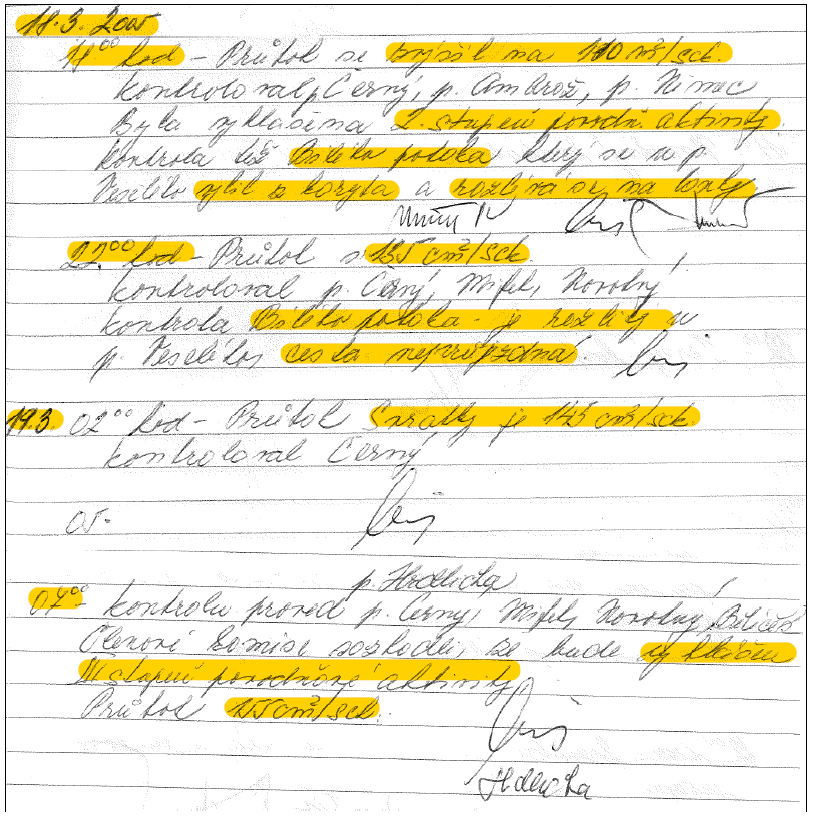 18.3. 2005
11⁰⁰ hod - Průtok se zvýšil na 110 m³/sek.
kontroloval p. Černý, p. Ambrož, p. Němec
Byla vyhlášena 2. stupeň povodň. aktivity.
kontrola též Bílého potoka který se u p.
Veselého vylil z koryta a rozlévá se na louky
22⁰⁰ hod - Průtok 135 cm³/sek.
kontroloval p. Černý, Novotný
kontrola Bílého potoka - je rozlitý u
p. Veselého, cesta neprůjezdná.
19.3. 02⁰⁰ hod - Průtok Svratky je 145 cm³/sek.
kontroloval Černý
05.
p. Hrdlička
07⁰⁰ - kontrolu proved p. Černý, Novotný,
Členové komise rozhodli, že bude vyhlášen
III stupeň povodňové aktivity
Průtok 155 cm³/sek.
Hrdlička